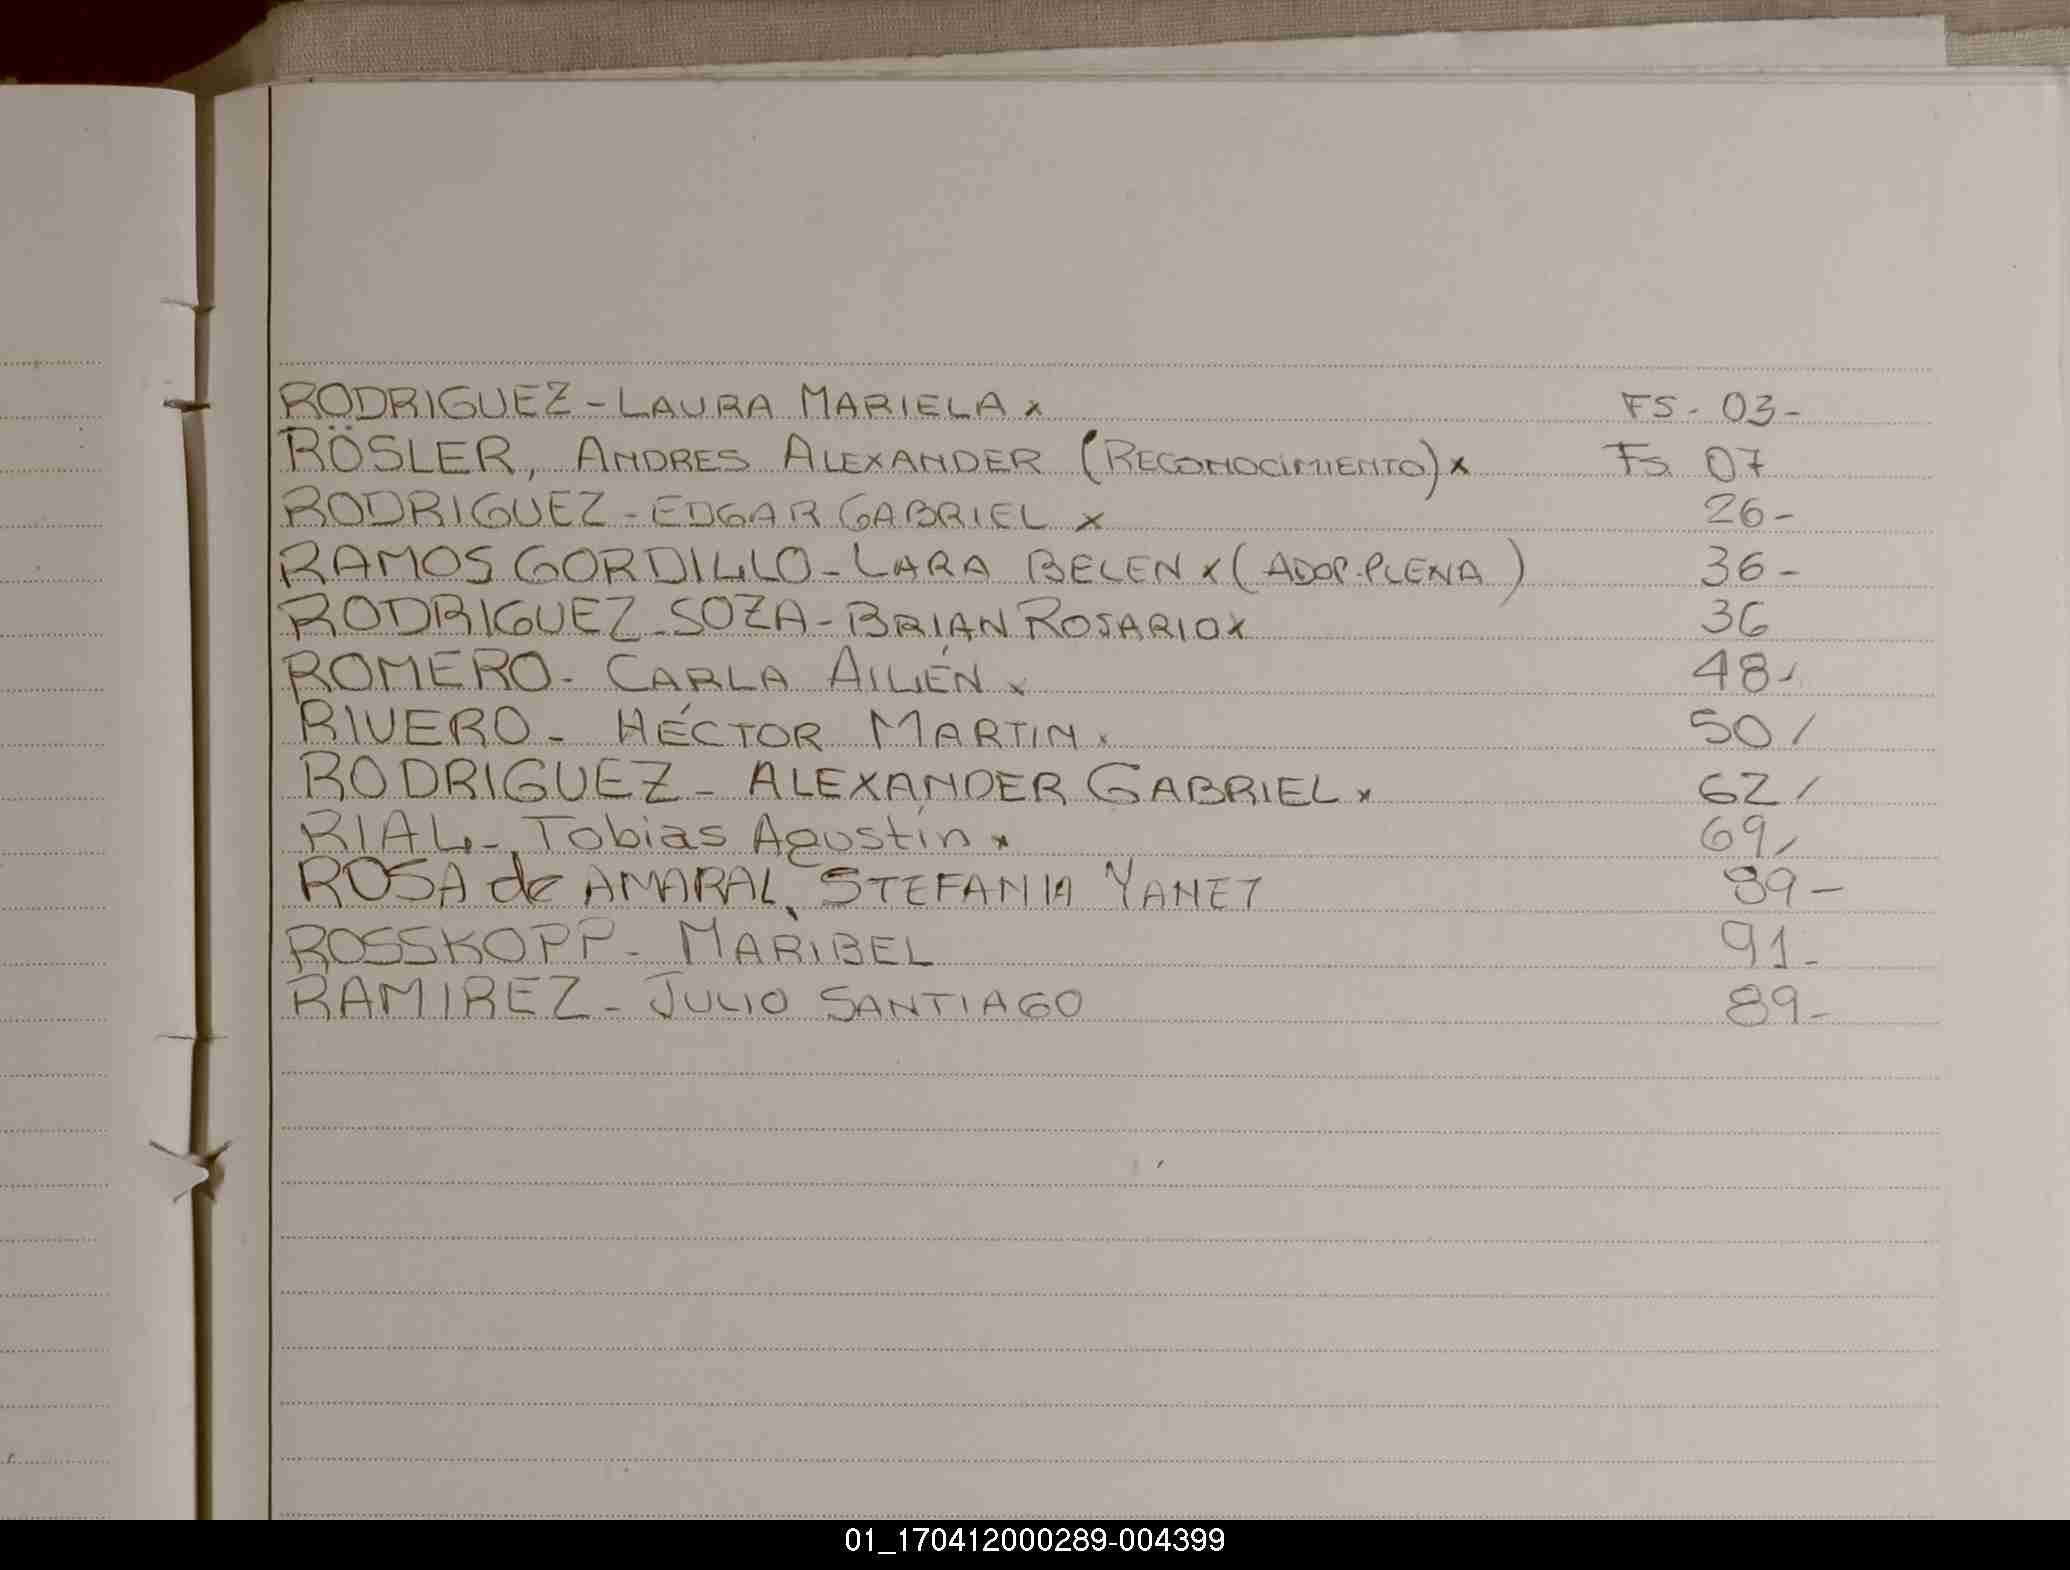 RODRIGUEZ - LAURA MARIELA x FS - 03 -
RÖSLER, ANDRES ALEXANDER (RECONOCIMIENTO) x FS. 07
RODRIGUEZ - EDGAR GABRIEL x 26 -
RAMOS GORDILLO - LARA BELEN x ( ADOP. PLENA ) 36 -
RODRIGUEZ - SOZA - BRIAN ROSARIO x 36
ROMERO - CARLA AILIÉN x 48 -
RIVERO - HÉCTOR MARTIN x 50 /
RODRIGUEZ - ALEXANDER GABRIEL x 62 /
RIAL - Tobias Agustín x 69 /
ROSA de AMARAL, STEFANIA YANET 89 -
ROSSKOPP - MARIBEL 91 -
RAMIREZ - JULIO SANTIAGO 89 -
01_170412000289-004399